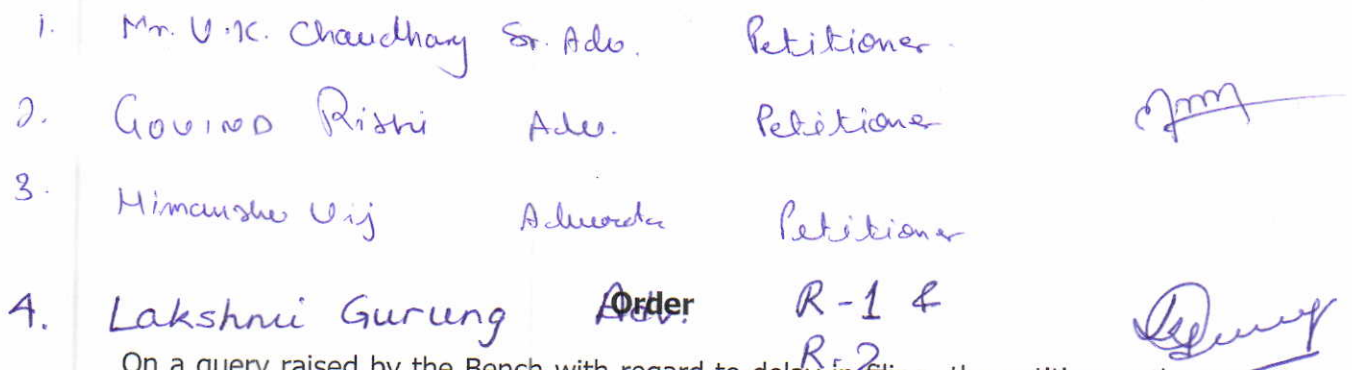 1. Mr. V.K. Chaudhary Sr. Adv. Petitioner
2. GOVIND Rishi Adv. Petitioner
3. Himanshu Vij Advocate Petitioner
4. Lakshmi Gurung Adv. R-1 &
Order
R-2
On a query raised by the Bench with regard to delay in filing the petition